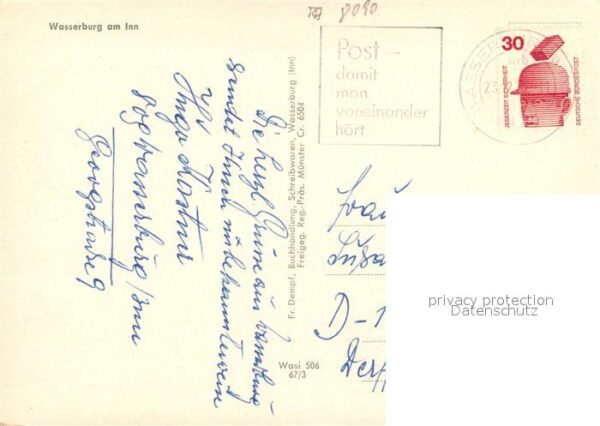 Wasserburg am Inn
8090
Post –
damit
man
voneinander
hört
30
JEDERZEIT SICHERHEIT
DEUTSCHE BUNDESPOST
Die herzl. Grüße aus Wasserburg
sendet Ihnen unbekannterweise
Ihr
809 Wasserburg/Inn
Georgstraße 9
Fr. Dempf, Buchhandlung, Schreibwaren, Wasserburg (Inn)
Freigeg. Reg.-Präs. Münster Cr. 6504
Wasi 506
67/3
Frau
D-1
privacy protection
Datenschutz